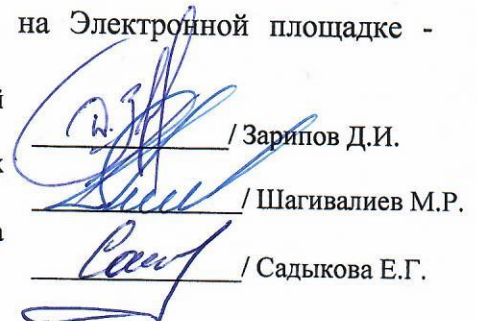 на Электронной площадке -
й
/ Зарипов Д.И.
х
/ Шагивалиев М.Р.
а
/ Садыкова Е.Г.